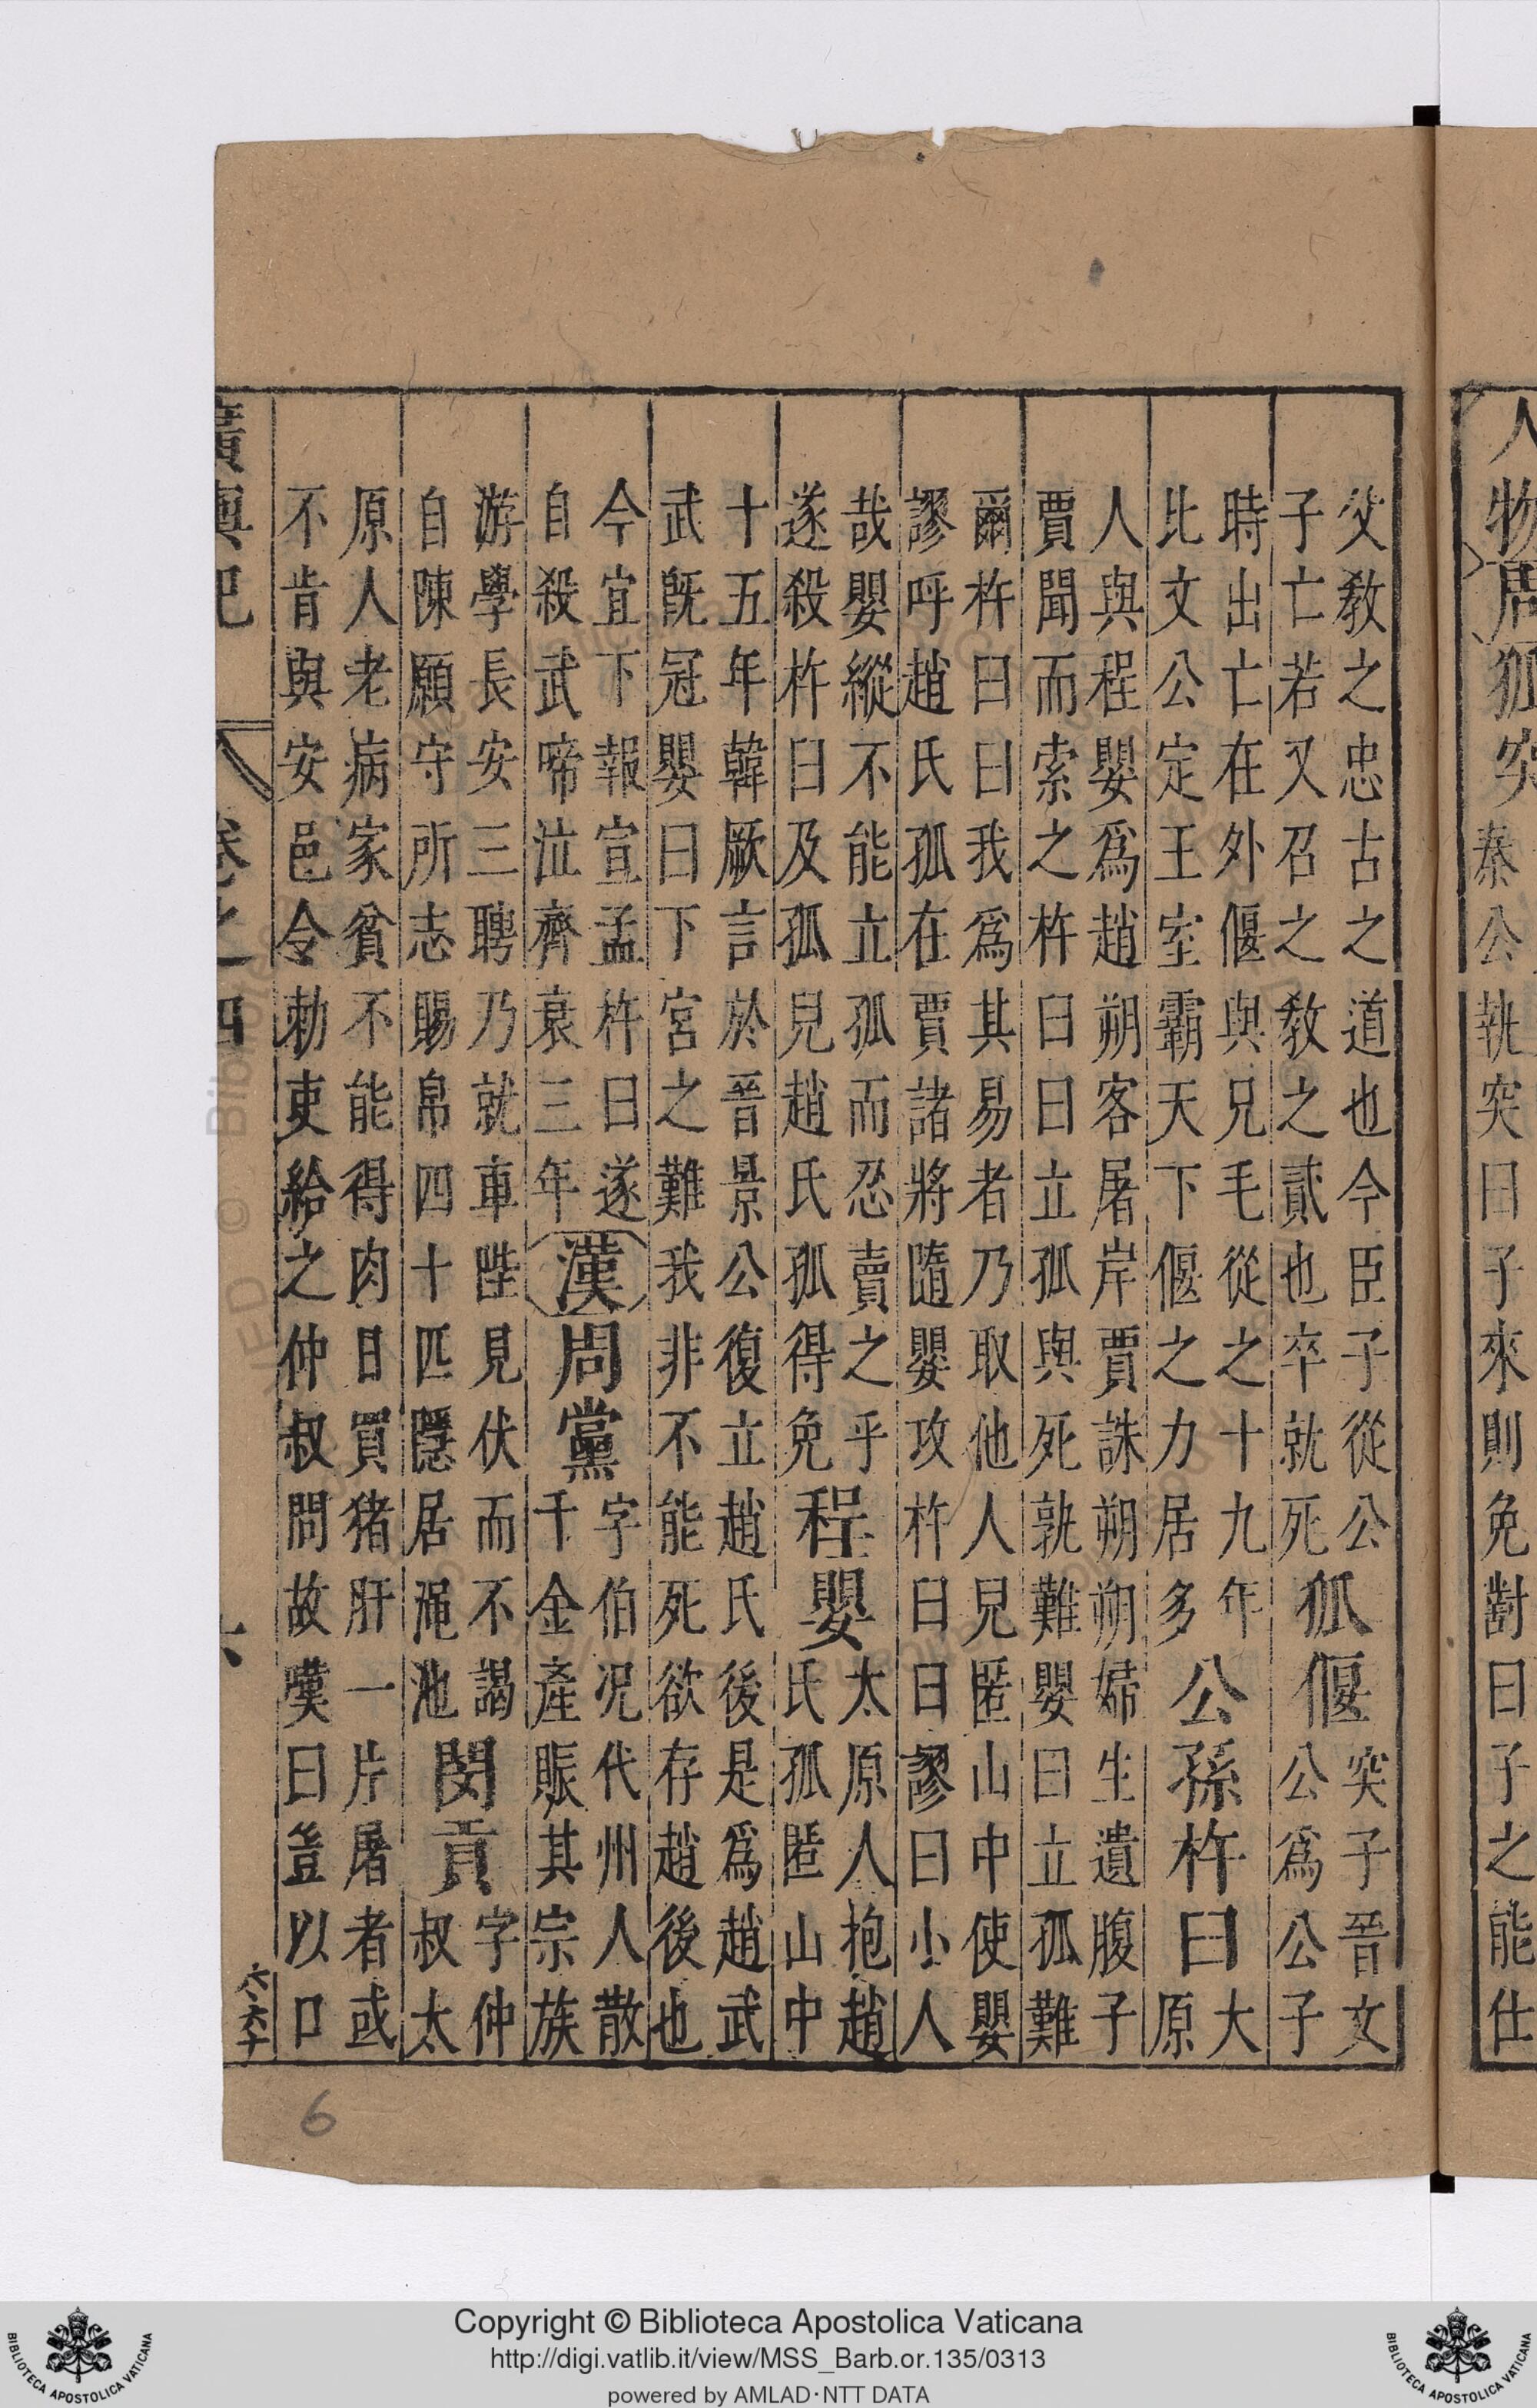 人物周狐突
公執突曰子來則免對曰子之能仕
父教之忠古之道也今臣子從公
子亡若又召之教之貳也卒就死
狐偃
突子晉文
公爲公子
時出亡在外偃與兄毛從之十九年
比文公定王室霸天下偃之力居多
公孫杵臼
大
原
人與程嬰爲趙朔客屠岸賈誅朔朔婦生遺腹子
賈聞而索之杵臼曰立孤與死孰難嬰曰立孤難
爾杵臼曰我爲其易者乃取他人兒匿山中使嬰
謬呼趙氏孤在賈諸將隨嬰攻杵臼曰謬曰小人
哉嬰縱不能立孤而忍賣之乎
遂殺杵臼及孤兒趙氏孤得免
程嬰
太原人抱趙
氏孤匿山中
十五年韓厥言於晉景公復立趙氏後是爲趙武
武旣冠嬰曰下宮之難我非不能死欲存趙後也
今宜下報宣孟杵臼遂
自殺武啼泣齊衰三年
漢周黨
字伯况代州人散
千金產賑其宗族
游學長安三聘乃就車陛見伏而不謁
自陳願守所志賜帛四十匹隱居澠池
閔貢
字仲
叔太
原人老病家貧不能得肉日買猪肝一片屠者或
不肯與安邑令勅吏給之仲叔問故嘆曰豈以口
廣輿記 卷之四 六
6
Copyright © Biblioteca Apostolica Vaticana
http://digi.vatlib.it/view/MSS_Barb.or.135/0313
powered by AMLAD·NTT DATA